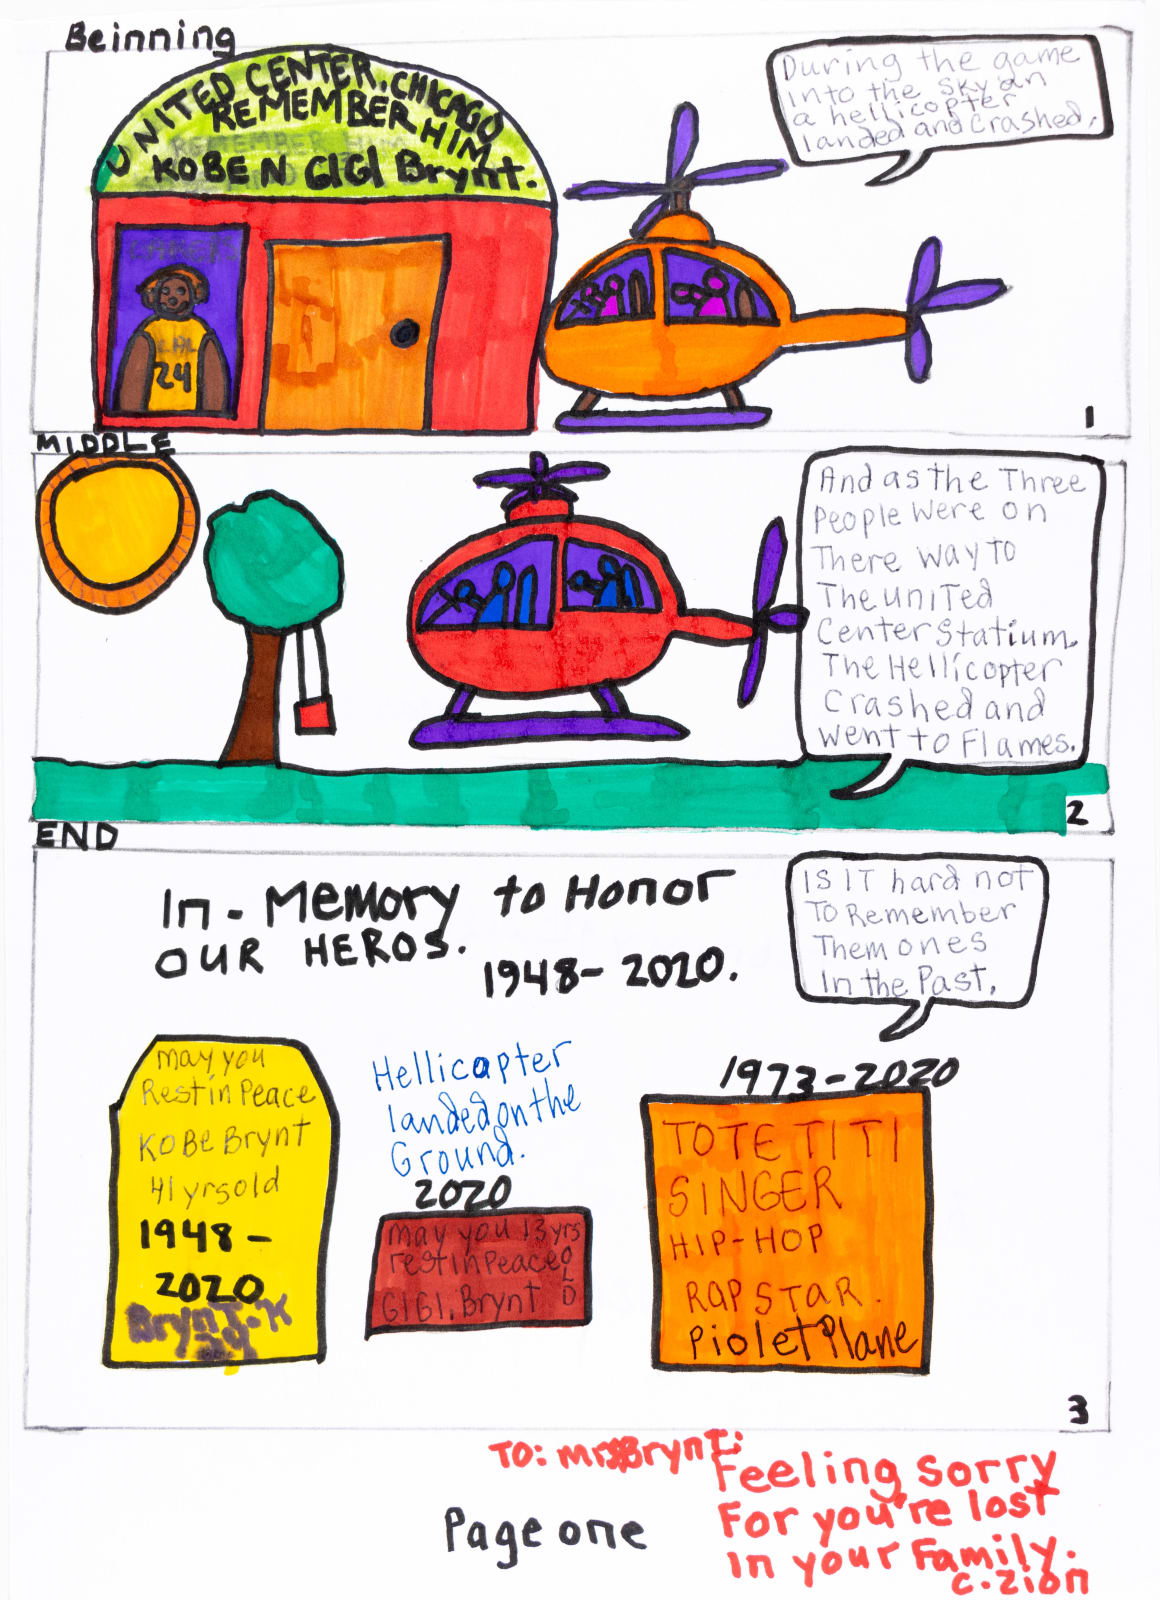 Beinning
UNITED CENTER. CHICAGO
REMEMBER HIM
KOBE N GIGI Brynt.
LAKERS
LAL
24
During the game
into the sky an
a hellicopter
landed and crashed,
1
MIDDLE
And as the Three
People were on
There way to
The united
Center statium.
The Hellicopter
crashed and
went to Flames.
2
END
In - Memory to Honor
OUR HEROS.
1948 - 2020.
IS IT hard not
To Remember
Them ones
In the Past,
may you
Rest in Peace
KoBe Brynt
41 yrs old
1948 -
2020
Brynt. K
Hellicopter
landed on the
Ground.
2020
may you 13 yrs
rest in peace OLD
GIGI. Brynt
1973 - 2020
TOTE TITI
SINGER
HIP-HOP
RAP STAR.
Piolet Plane
3
To: mrs Brynt:
Feeling sorry
For you're lost
In your Family.
c. zion
Page one